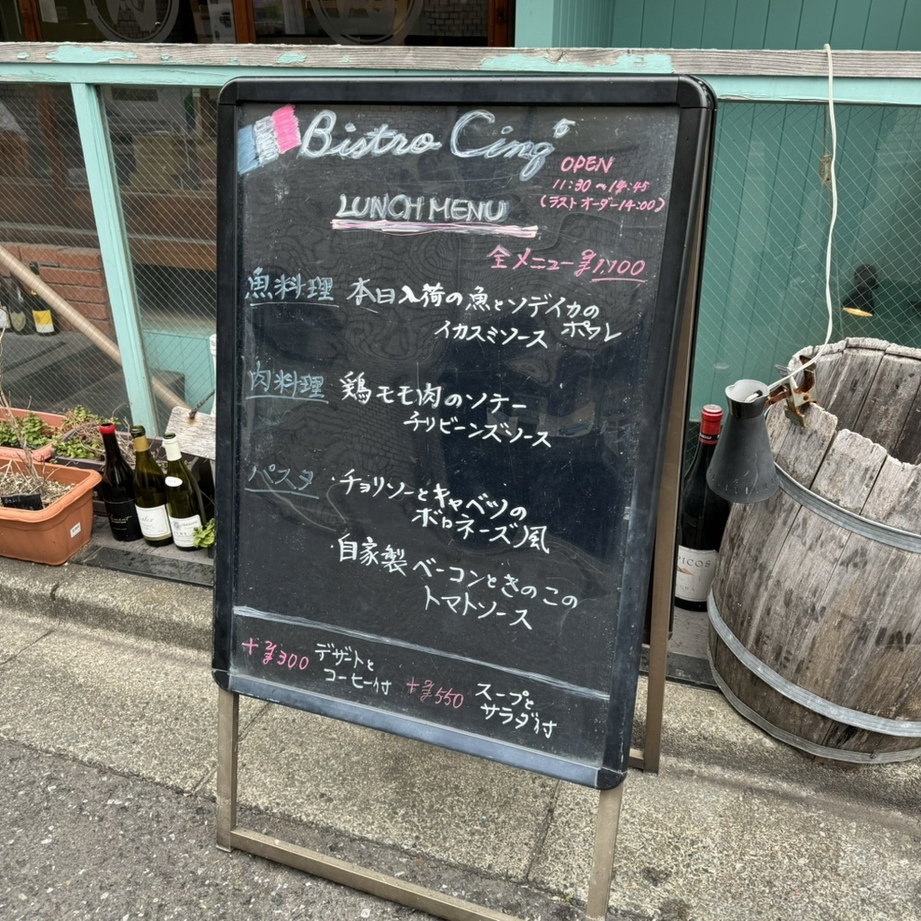 Bistro Cinq
OPEN
11:30〜14:45
(ラストオーダー14:00)
LUNCH MENU
全メニュー ¥1,700
魚料理 本日入荷の魚とソデイカのポワレ
イカスミソース
肉料理 鶏モモ肉のソテー
チリビーンズソース
パスタ ・チョリソーとキャベツの
ボロネーズ風
・自家製ベーコンときのこの
トマトソース
+¥300 デザートと
コーヒー付
+¥550 スープと
サラダ付